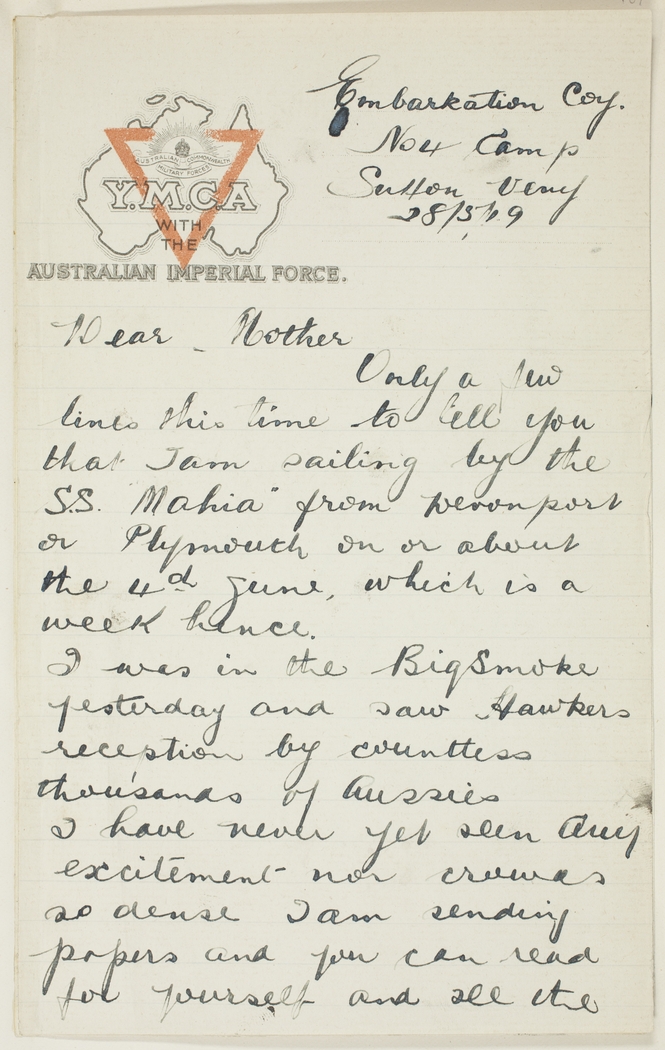 Embarkation Coy.
No 4 Camp
Sutton Veny
28/5/19
AUSTRALIAN COMMONWEALTH
MILITARY FORCES
Y.M.C.A
WITH
THE
AUSTRALIAN IMPERIAL FORCE.
Dear Mother
Only a few
lines this time to tell you
that I am sailing by the
S.S. "Mahia" from Devonport
or Plymouth on or about
the 4d June, which is a
week hence.
I was in the Big Smoke
yesterday and saw Hawkers
reception by countless
thousands of Aussies
I have never yet seen Any
excitement nor crowds
so dense I am sending
papers and you can read
for yourself and see the